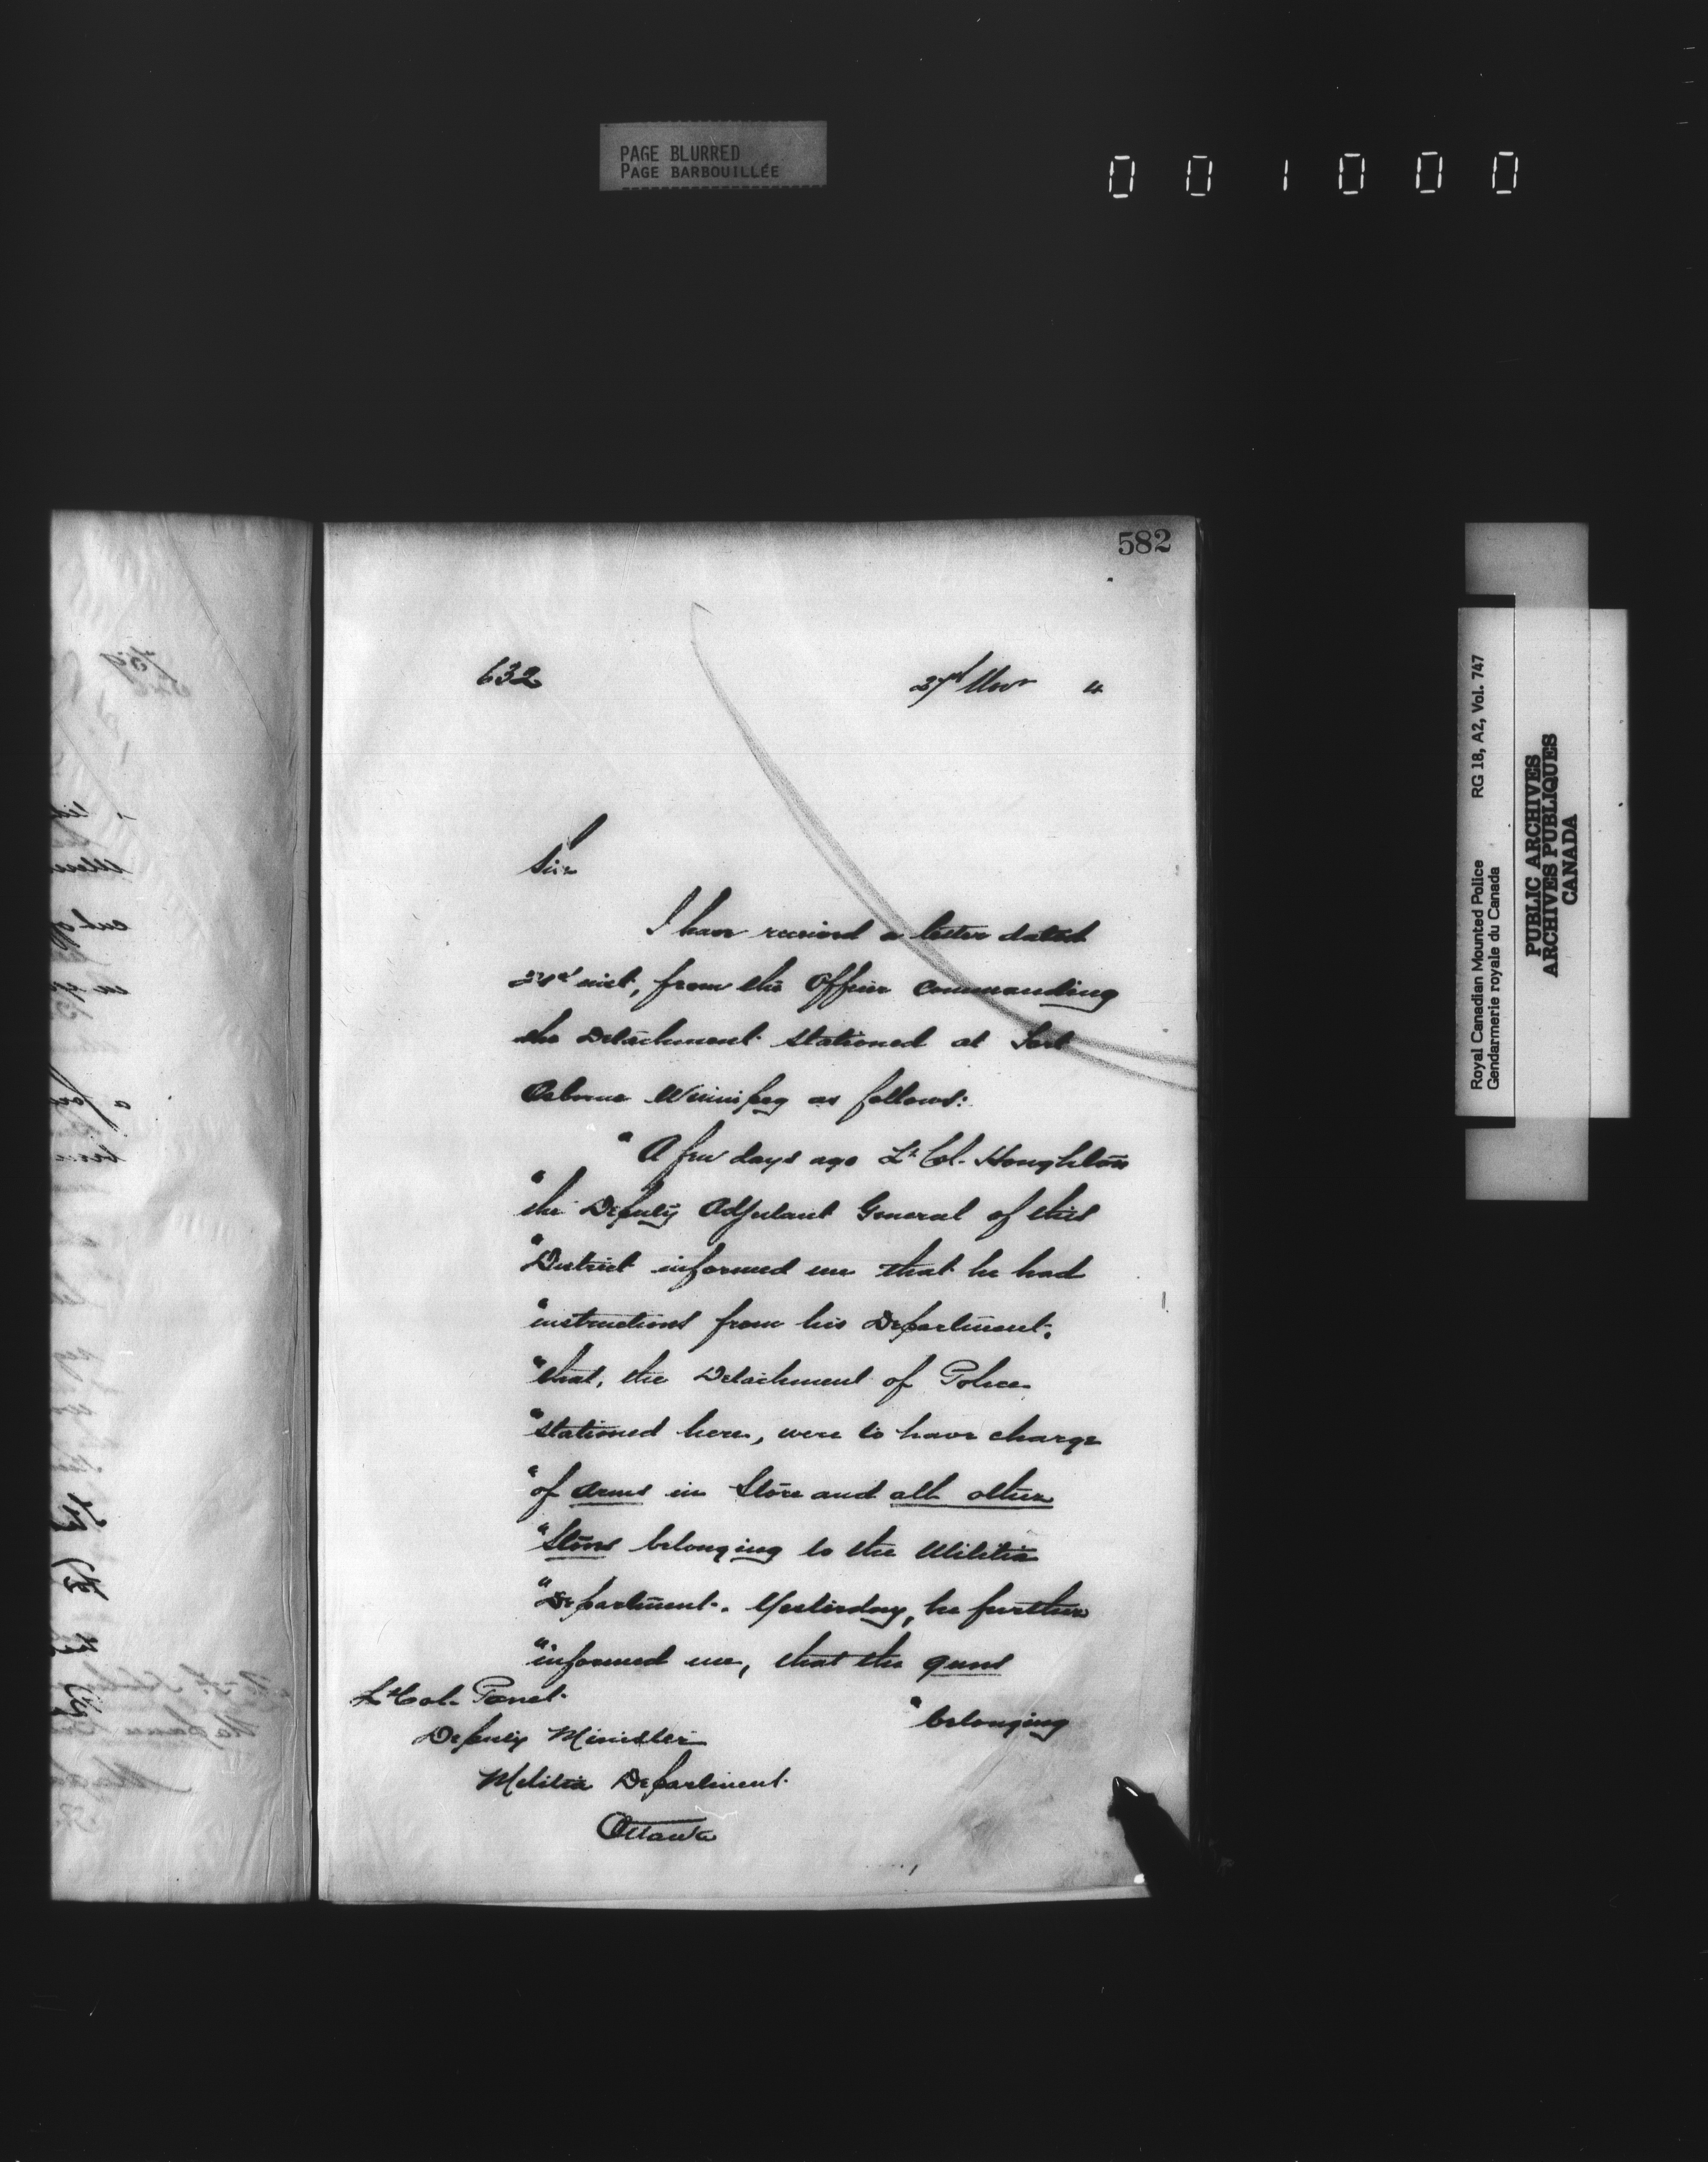 PAGE BLURRED
PAGE BARBOUILLÉE
0 0 1 0 0 0
582
632
27th Nov 4
Sir
I have received a letter dated
inst, from the Officer Commanding
the Detachment stationed at Fort
Osborne Winnipeg as follows:
" A few days ago Lt Col. Houghton
" the Deputy Adjutant General of this
" District informed me that he had
" instructions from his Department,
" that, the Detachment of Police
" stationed here, were to have charge
" of arms in Store and all other
" Stores belonging to the Militia
" Department. Yesterday, he further
" informed me, that the guns
" belonging
Lt Col. Panet
Deputy Minister
Militia Department
Ottawa
Royal Canadian Mounted Police RG 18, A2, Vol. 747
Gendarmerie royale du Canada
PUBLIC ARCHIVES
ARCHIVES PUBLIQUES
CANADA